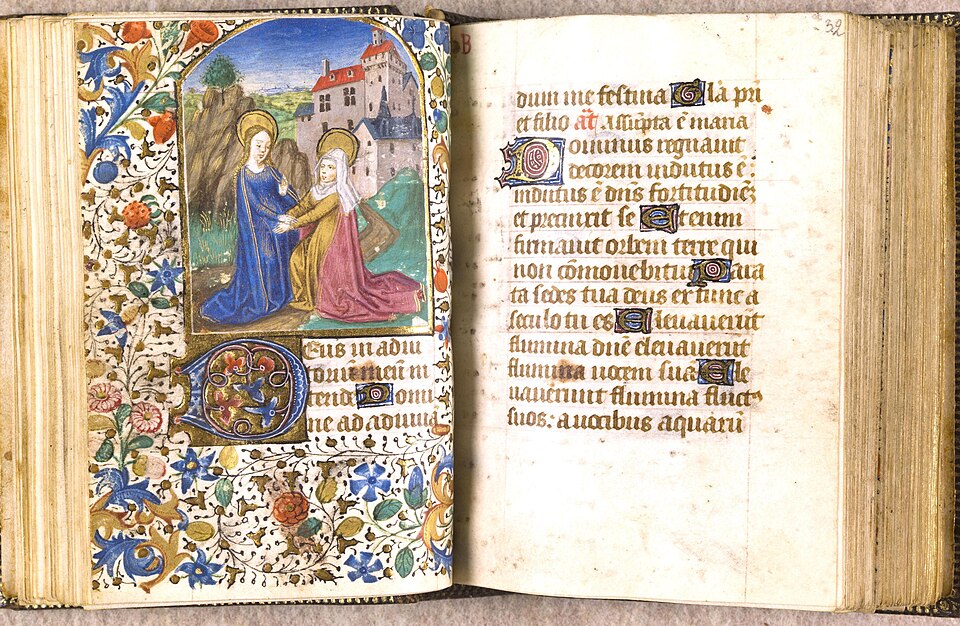 Deus in adiu
toriū meū in
tende Domi
ne ad adiuua
B
32
dum me festina Gl̄a pr̄i
et filio añ Assūpta ē maria
Dominus regnauit
decorem indutus ē:
indutus ē dn̄s fortitudinē
et precinxit se Etenim
firmauit orbem terre qui
non cōmouebitur Para
ta sedes tua deus ex tunc a
seculo tu es Eleuauerūt
flumina dn̄e eleuauerūt
flumina uocem suā Ele
uauerunt flumina fluct⁹
suos: a uocibus aquarū